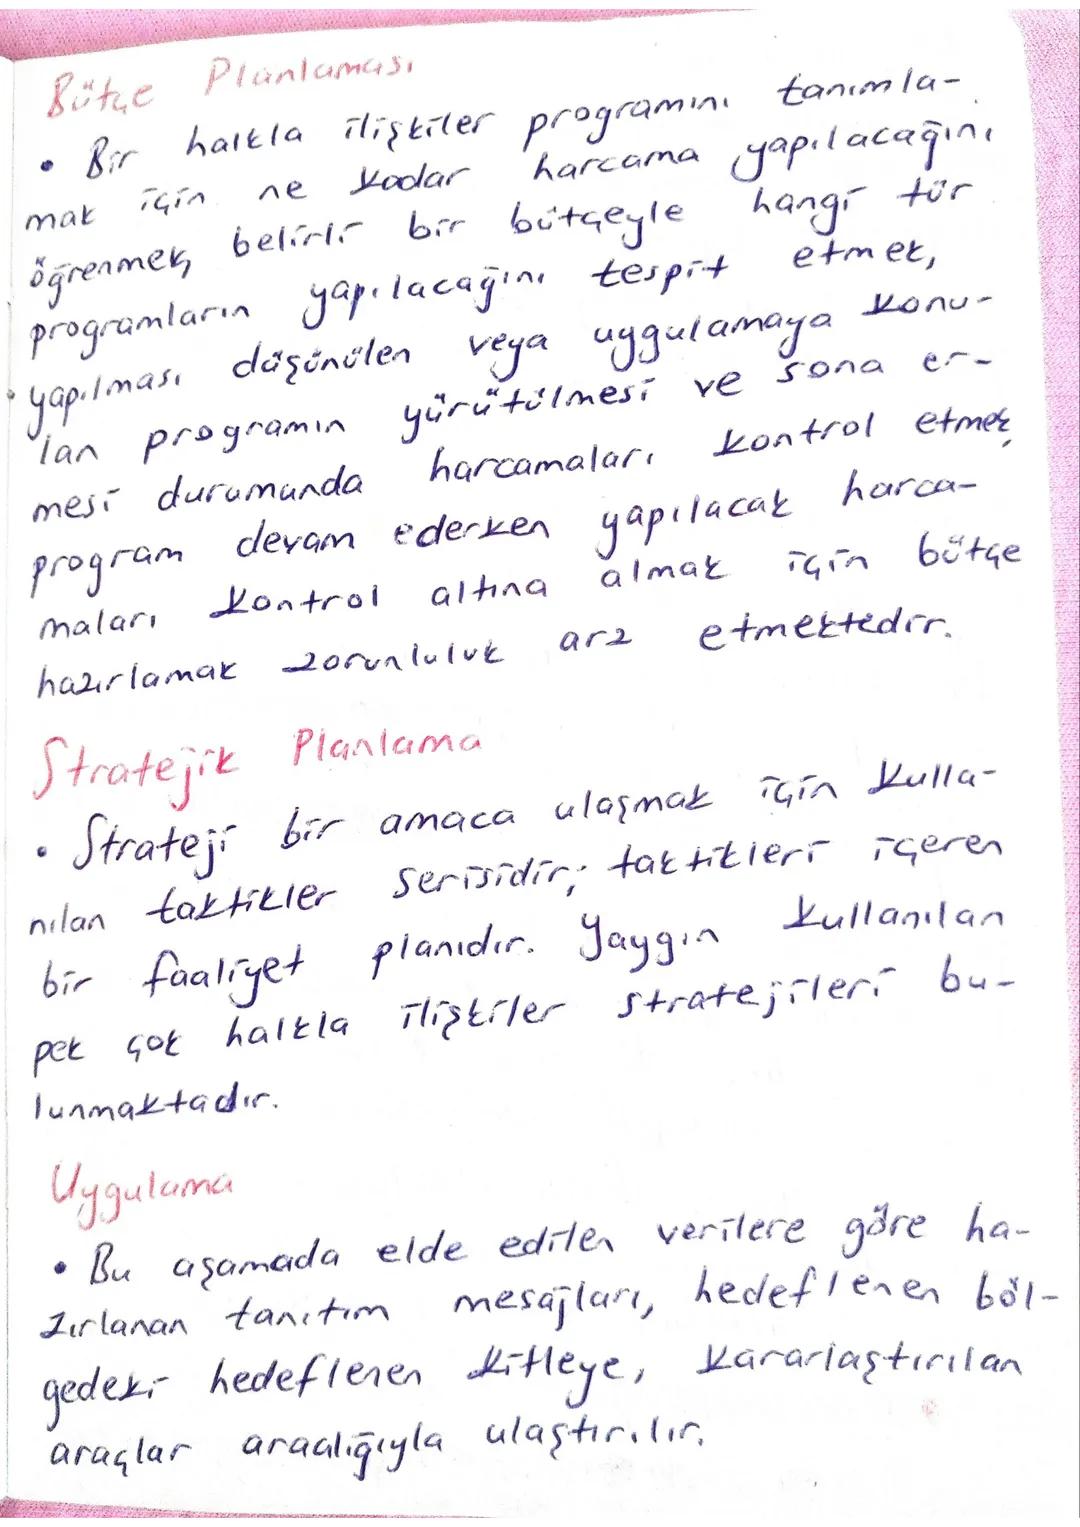 Bütçe Planlaması
• Bir halkla ilişkiler programını tanımla-
mak için ne kadar harcama yapılacağını
öğrenmek, belirli bir bütçeyle hangi tür
programların yapılacağını tespit etmek,
yapılması düşünülen veya uygulamaya konu-
lan programın yürütülmesi ve sona er-
mesi durumunda harcamaları kontrol etmek,
program devam ederken yapılacak harca-
maları kontrol altına almak için bütçe
hazırlamak zorunluluk arz etmektedir.
Stratejik Planlama
• Strateji bir amaca ulaşmak için kulla-
nılan taktikler serisidir; taktikleri içeren
bir faaliyet planıdır. Yaygın kullanılan
pek çok halkla ilişkiler stratejileri bu-
lunmaktadır.
Uygulama
• Bu aşamada elde edilen verilere göre ha-
zırlanan tanıtım mesajları, hedeflenen böl-
gedeki hedeflenen kitleye, kararlaştırılan
araçlar aracılığıyla ulaştırılır.